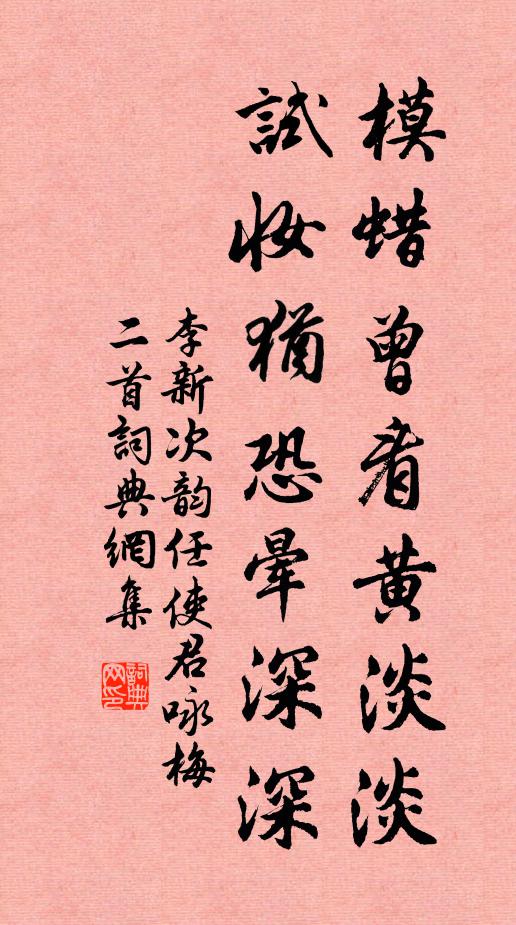 模蜡曾看黄淡淡
試妝猶恐暈深深
李新次韵任使君咏梅
二首詞典網集
詞典
网印